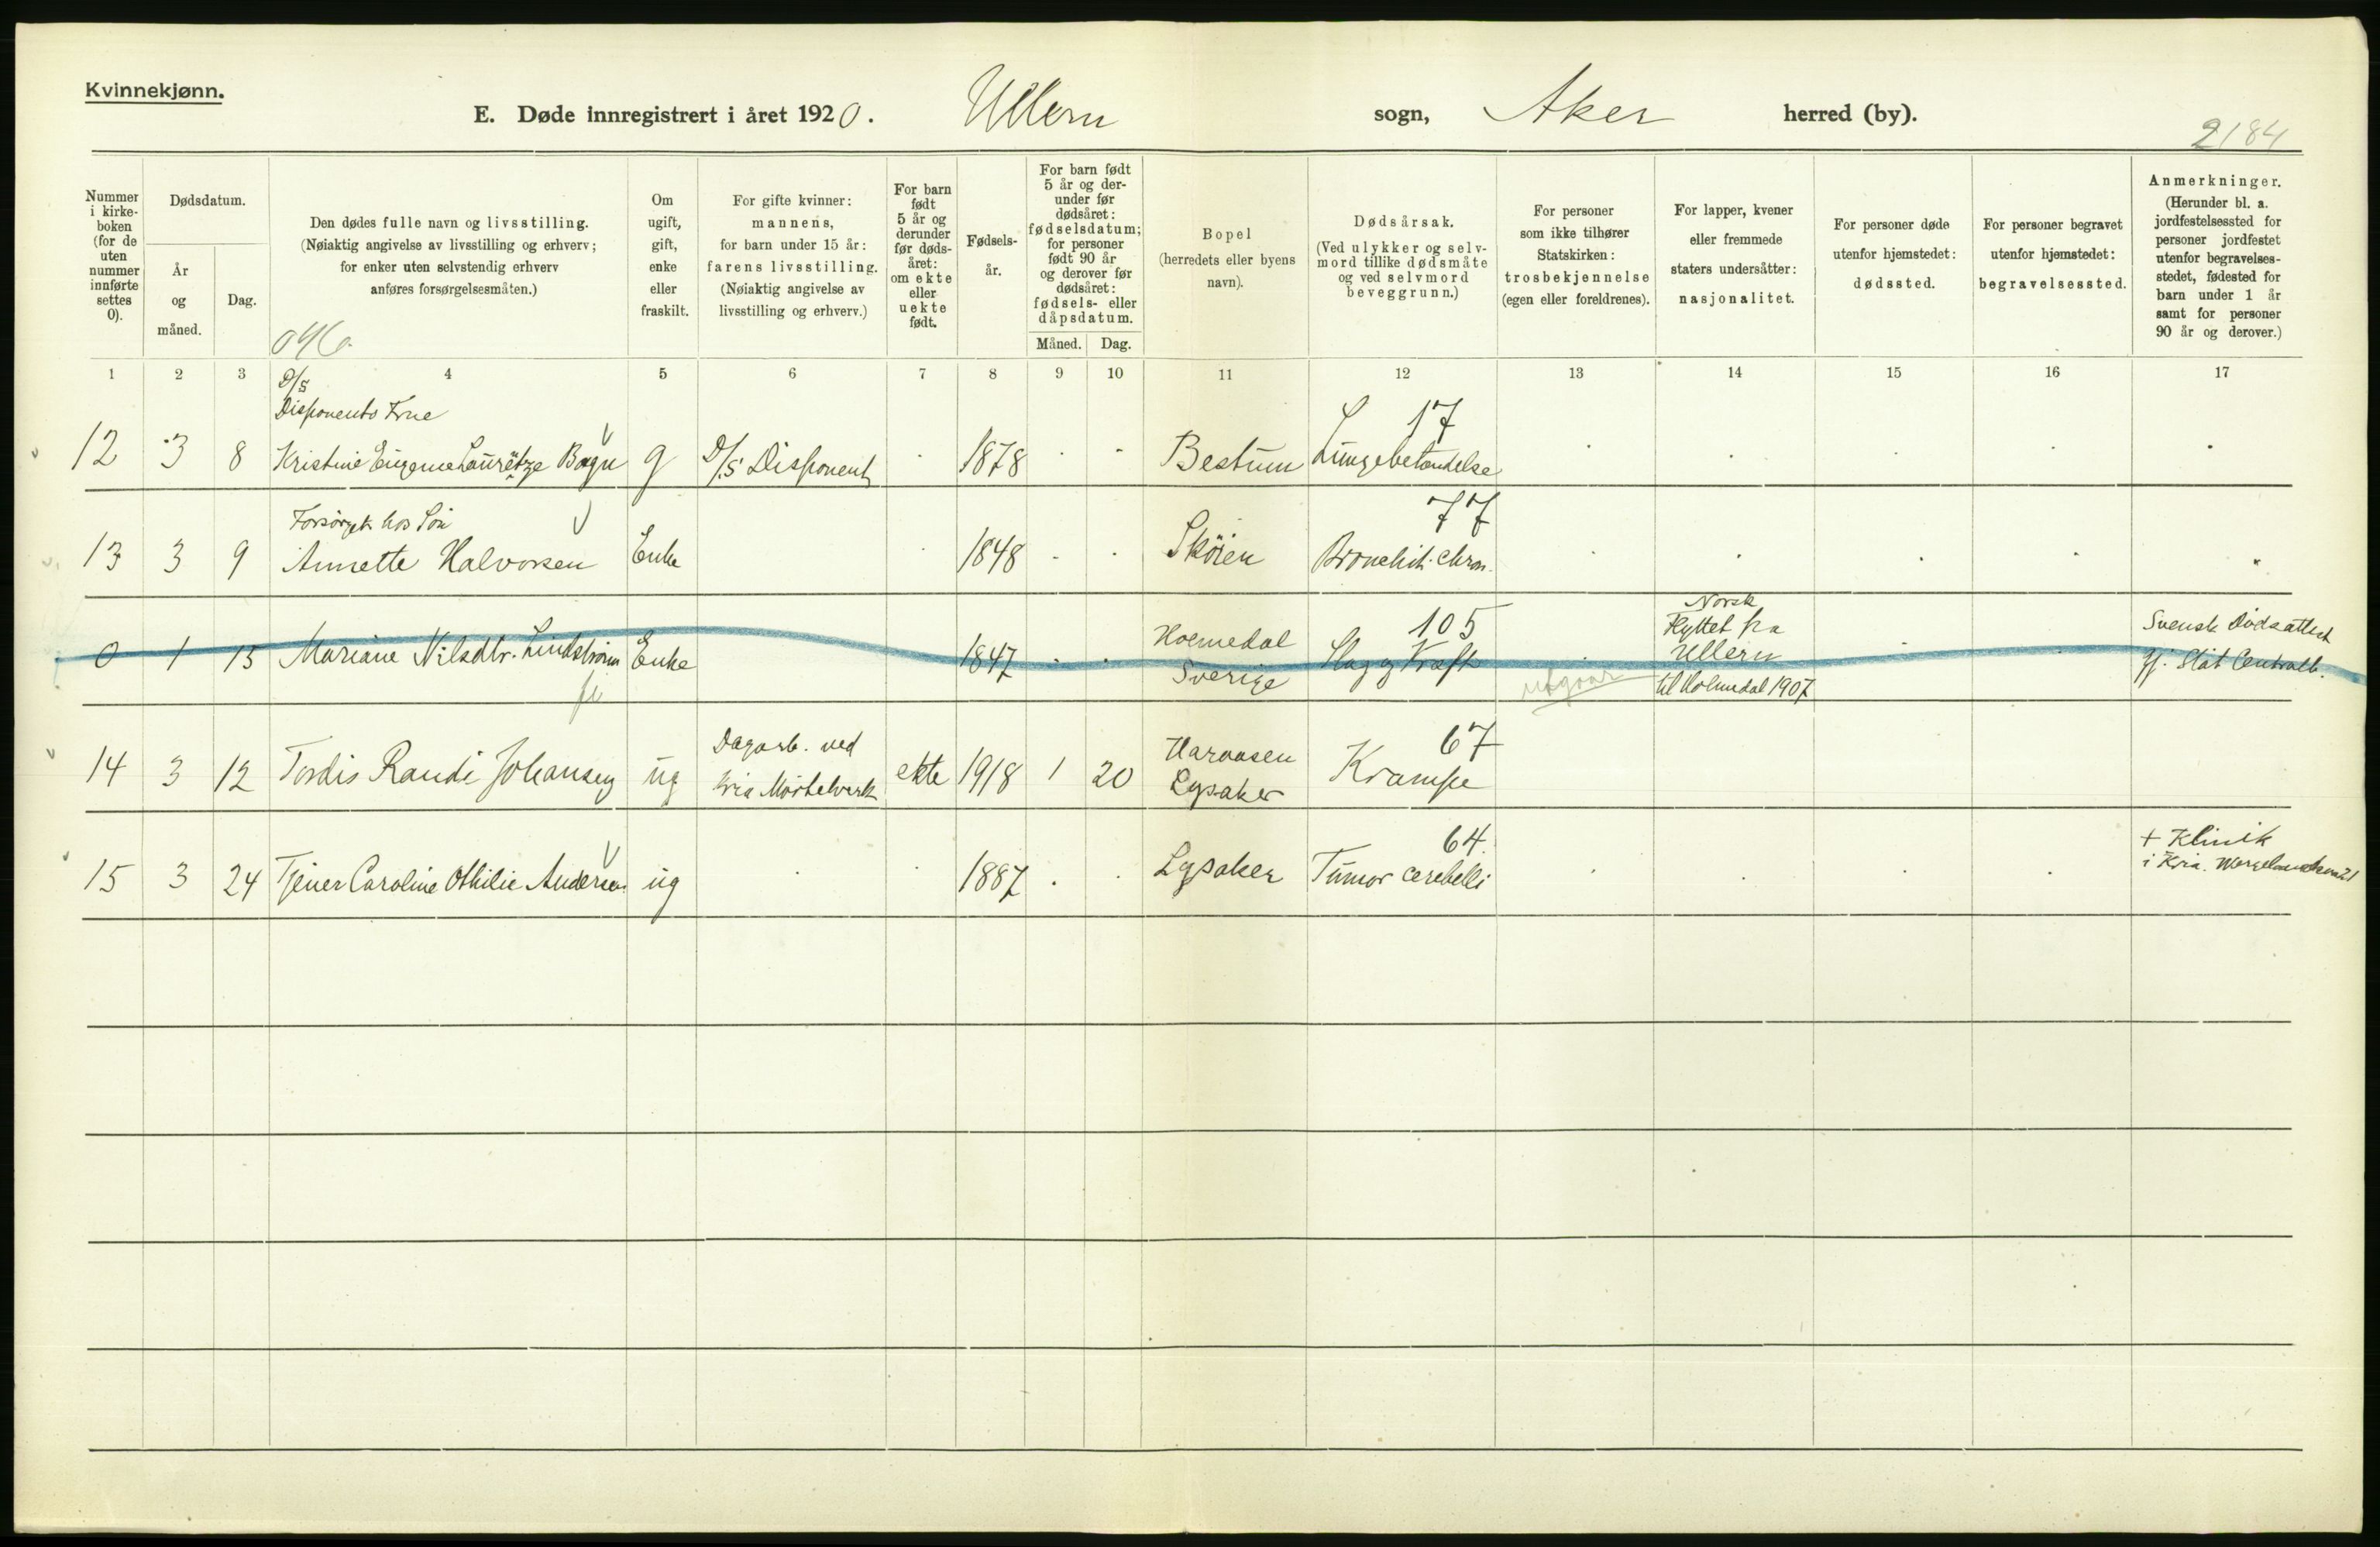 Kvinnekjønn.
E. Døde innregistrert i året 1920. Ullern sogn, Aker herred (by).
2184
Nummer i kirke- boken (for de uten nummer innførte settes 0).
Dødsdatum.
År og måned.
Dag.
Den dødes fulle navn og livsstilling.
(Nøiaktig angivelse av livsstilling og erhverv;
for enker uten selvstendig erhverv
anføres forsørgelsesmåten.)
Om ugift, gift, enke eller fraskilt.
For gifte kvinner:
mannens,
for barn under 15 år:
farens livsstilling.
(Nøiaktig angivelse av
livsstilling og erhverv.)
For barn født 5 år og derunder før døds- året: om ekte eller uekte født.
Fødsels- år.
For barn født 5 år og der- under før dødsåret: fødselsdatum; for personer født 90 år og derover før dødsåret: fødsels- eller dåpsdatum.
Måned. Dag.
Bopel
(herredets eller byens
navn).
Dødsårsak.
(Ved ulykker og selv-
mord tillike dødsmåte
og ved selvmord
beveggrunn.)
For personer
som ikke tilhører
Statskirken:
trosbekjennelse
(egen eller foreldrenes).
For lapper, kvener
eller fremmede
staters undersåtter:
nasjonalitet.
For personer døde
utenfor hjemstedet:
dødssted.
For personer begravet
utenfor hjemstedet:
begravelsessted.
Anmerkninger.
(Herunder bl. a.
jordfestelsessted for
personer jordfestet
utenfor begravelses-
stedet, fødested for
barn under 1 år
samt for personer
90 år og derover.)
1 2 3 4 5 6 7 8 9 10 11 12 13 14 15 16 17
D/S
Disponents Frue
17
12 3 8 Kristine Eugenie Bagn g D/S Disponent 1878 Bestum Lungebetændelse
Forsörget hos Sön
77
13 3 9 Annette Halvorsen Enke 1848 Sköien Bronchit. chron.
Norsk
Holmedal 105 Flyttet fra Svensk Dödsattest
0 1 13 Mariane Nilsdtr. Lindström Enke 1847 Sverige Slag Ullern gj. Stat. Centralb.
utgaar til Holmedal 1907
Dagarb. ved 67
14 3 12 Tordis Randi Johansen ug Kria Mörtelverk ekte 1918 1 20 Lysaker Krampe
64. + Klinik
15 3 24 Tjener Caroline Othilie Andersen ug 1887 Lysaker Tumor cerebelli i Kria.